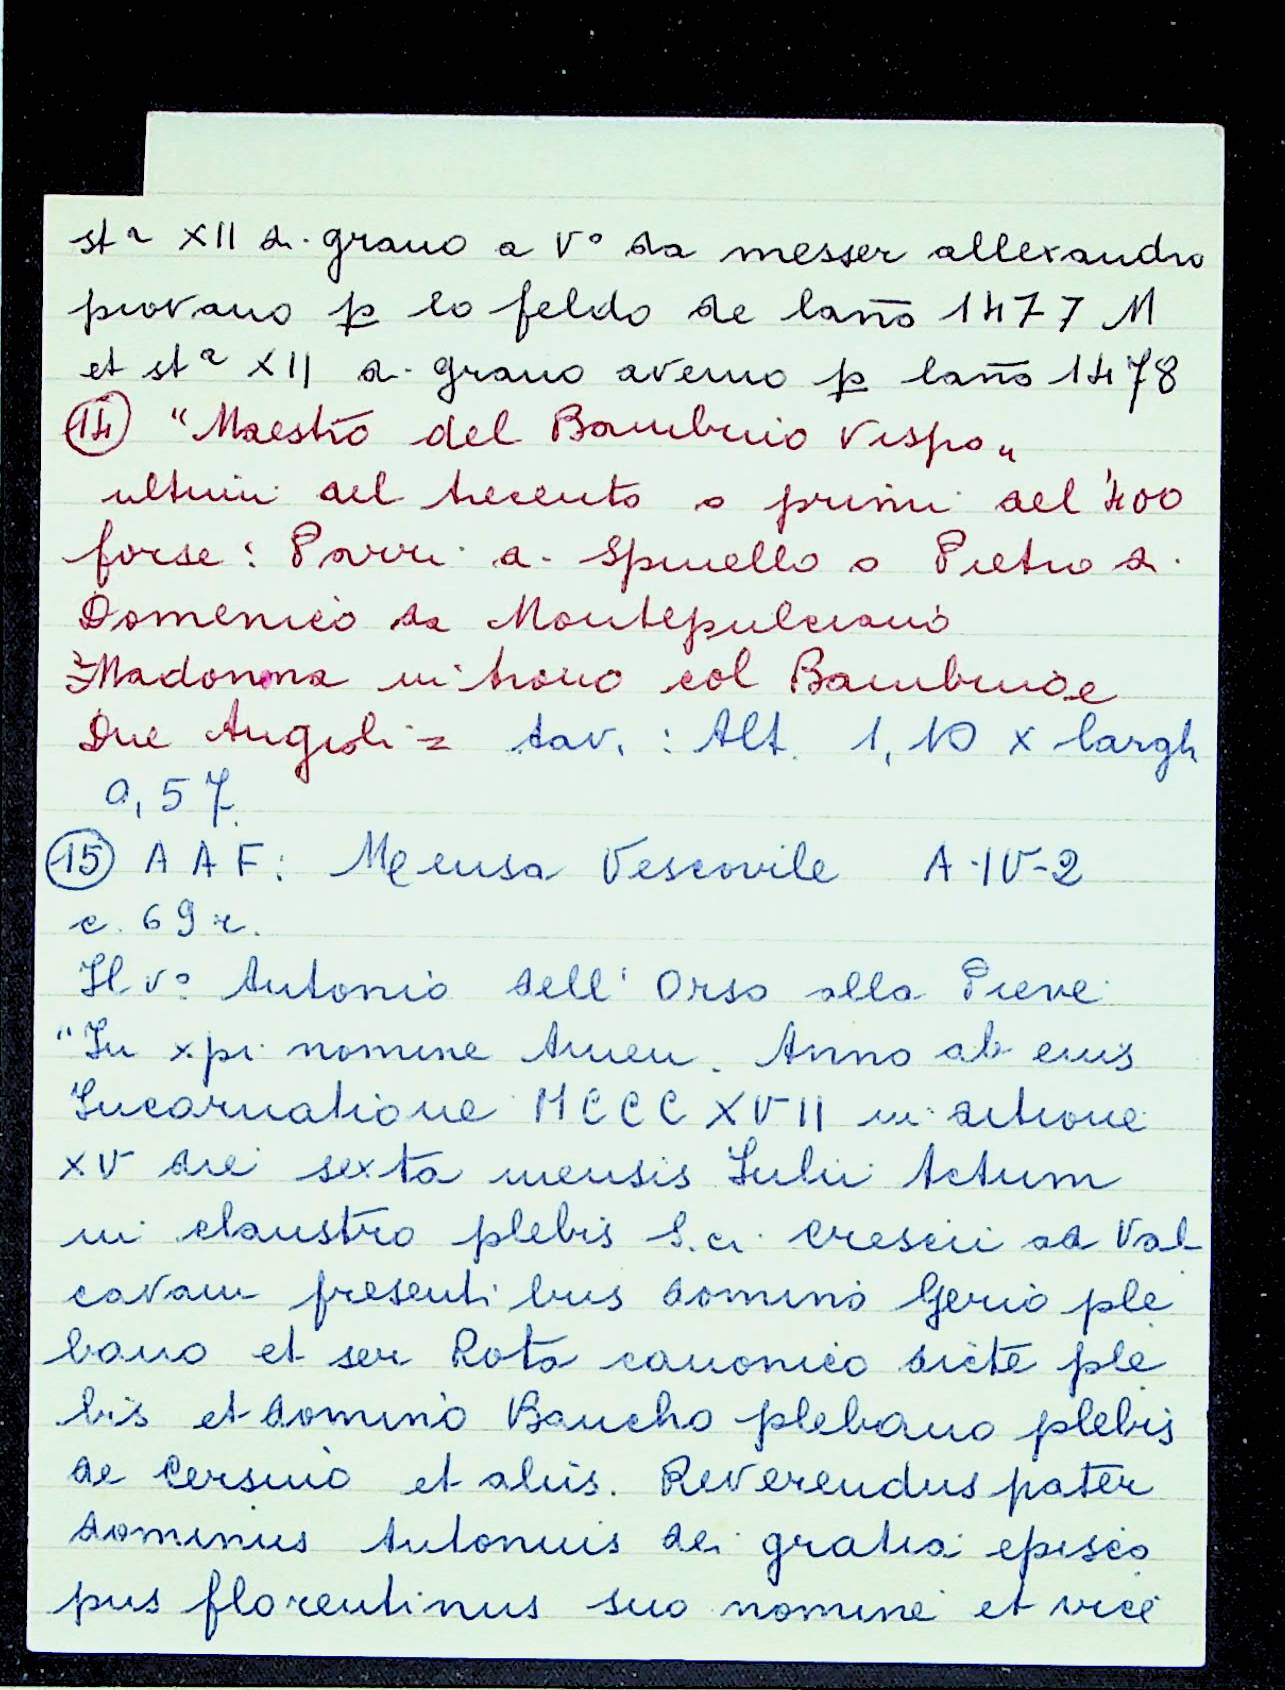 sta XII di grano a V° da messer allexandro
piovano p lo feldo de lano 1477 M
et sta XII di grano avemo p lano 1478
(14) "Maestro del Bambino Vispo"
ultimi del trecento o primi del '400
forse: Parri di Spinello o Pietro di
Domenico da Montepulciano
=Madonna in trono col Bambino e
Due Angioli= tav. : Alt. 1,10 x largh
0,57.
(15) AAF: Mensa Vescovile A-IV-2
c. 69 r.
Il v° Antonio dell'Orso alla Pieve
"In xpi nomine Amen. Anno ab eius
Incarnatione MCCCXVII in dictione
XV die sexta mensis Iulii Actum
in claustro plebis S.ci Crescii ad Val
cavam presentibus domino Gerio ple
bano et ser Rota canonico dicte ple
bis et domino Bancho plebano plebis
de Cersino et aliis. Reverendus pater
dominus Antonius dei gratia episco
pus florentinus suo nomine et vice